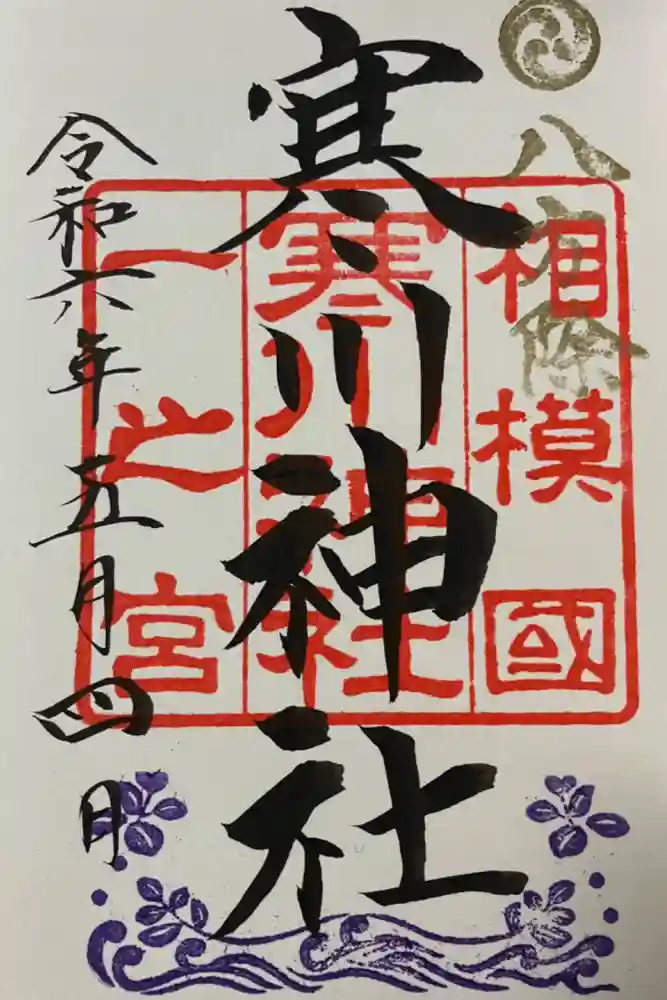 八方除
相模國
寒川神社
一之宮
寒川神社
令和六年五月四日